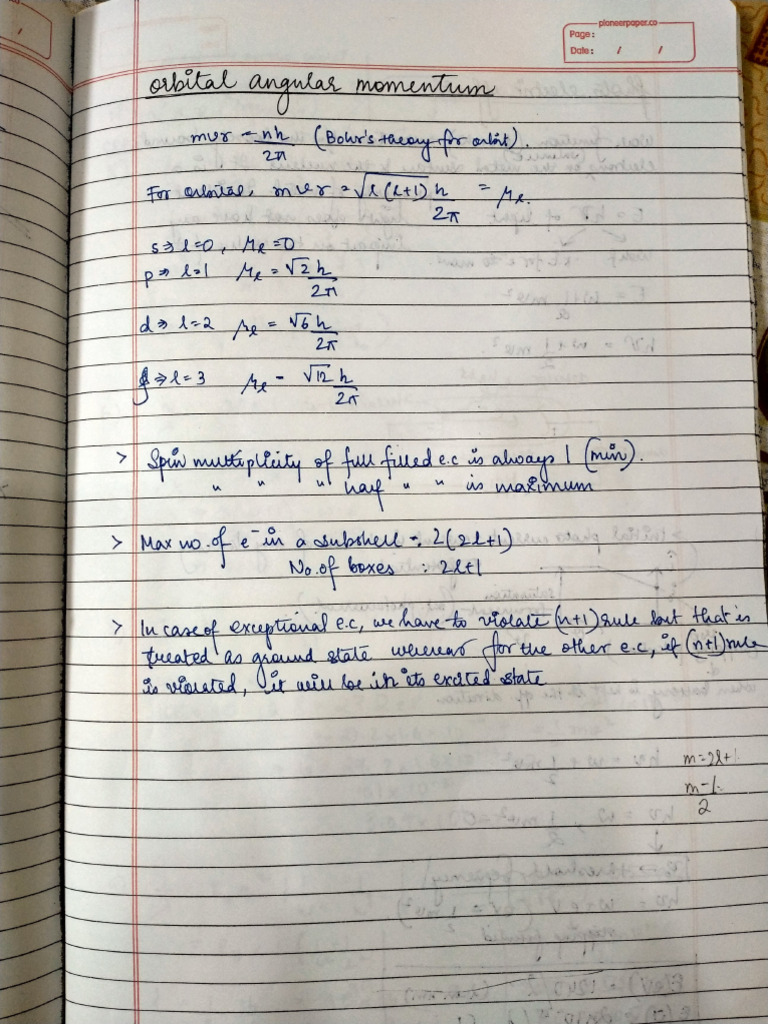 pioneerpaper.co
Page:
Date: / /
orbital angular momentum
mvr = nh/2π (Bohr's theory for orbit).
For orbital, mvr = √l(l+1) h/2π = μl.
s⇒ l=0, μl =0
p⇒ l=1 μl = √2 h/2π
d⇒ l=2 μl = √6 h/2π
f⇒ l=3 μl - √12 h/2π
> Spin multiplicity of full filled e.c is always 1 (min).
" " " half " " is maximum
> Max no. of e⁻ in a subshell -: 2(2l+1)
No. of boxes : 2l+1
> In case of exceptional e.c, we have to violate (n+1) rule but that is
treated as ground state whereas for the other e.c, if (n+1) rule
is violated, it will be in its excited state
m=2l+1
m-1/2